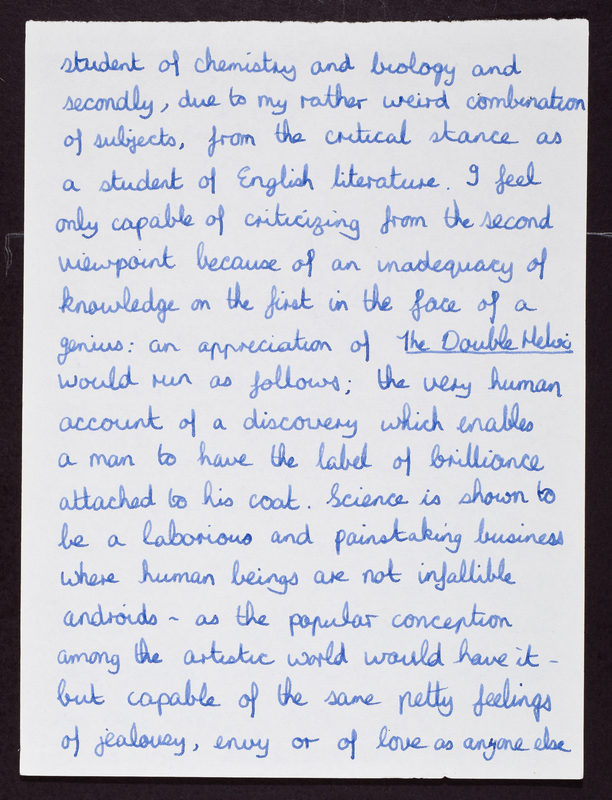 student of chemistry and biology and
secondly, due to my rather weird combination
of subjects, from the critical stance as
a student of English literature. I feel
only capable of criticizing from the second
viewpoint because of an inadequacy of
knowledge on the first in the face of a
genius: an appreciation of The Double Helix
would run as follows; the very human
account of a discovery which enables
a man to have the label of brilliance
attached to his coat. Science is shown to
be a laborious and painstaking business
where human beings are not infallible
androids - as the popular conception
among the artistic world would have it -
but capable of the same petty feelings
of jealousy, envy or of love as anyone else